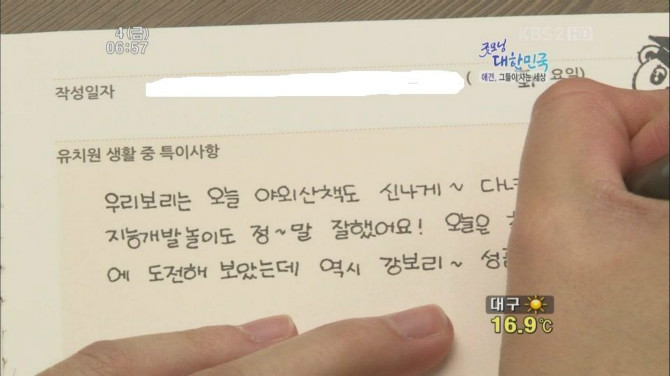 4(금)
06:57
KBS2 HD
굿모닝
대한민국
애견, 그들이 사는 세상
작성일자 ( 요일)
유치원 생활 중 특이사항
우리보리는 오늘 야외산책도 신나게~
지능개발놀이도 정~말 잘했어요! 오늘은
에 도전해 보았는데 역시 강보리~
대구
16.9℃